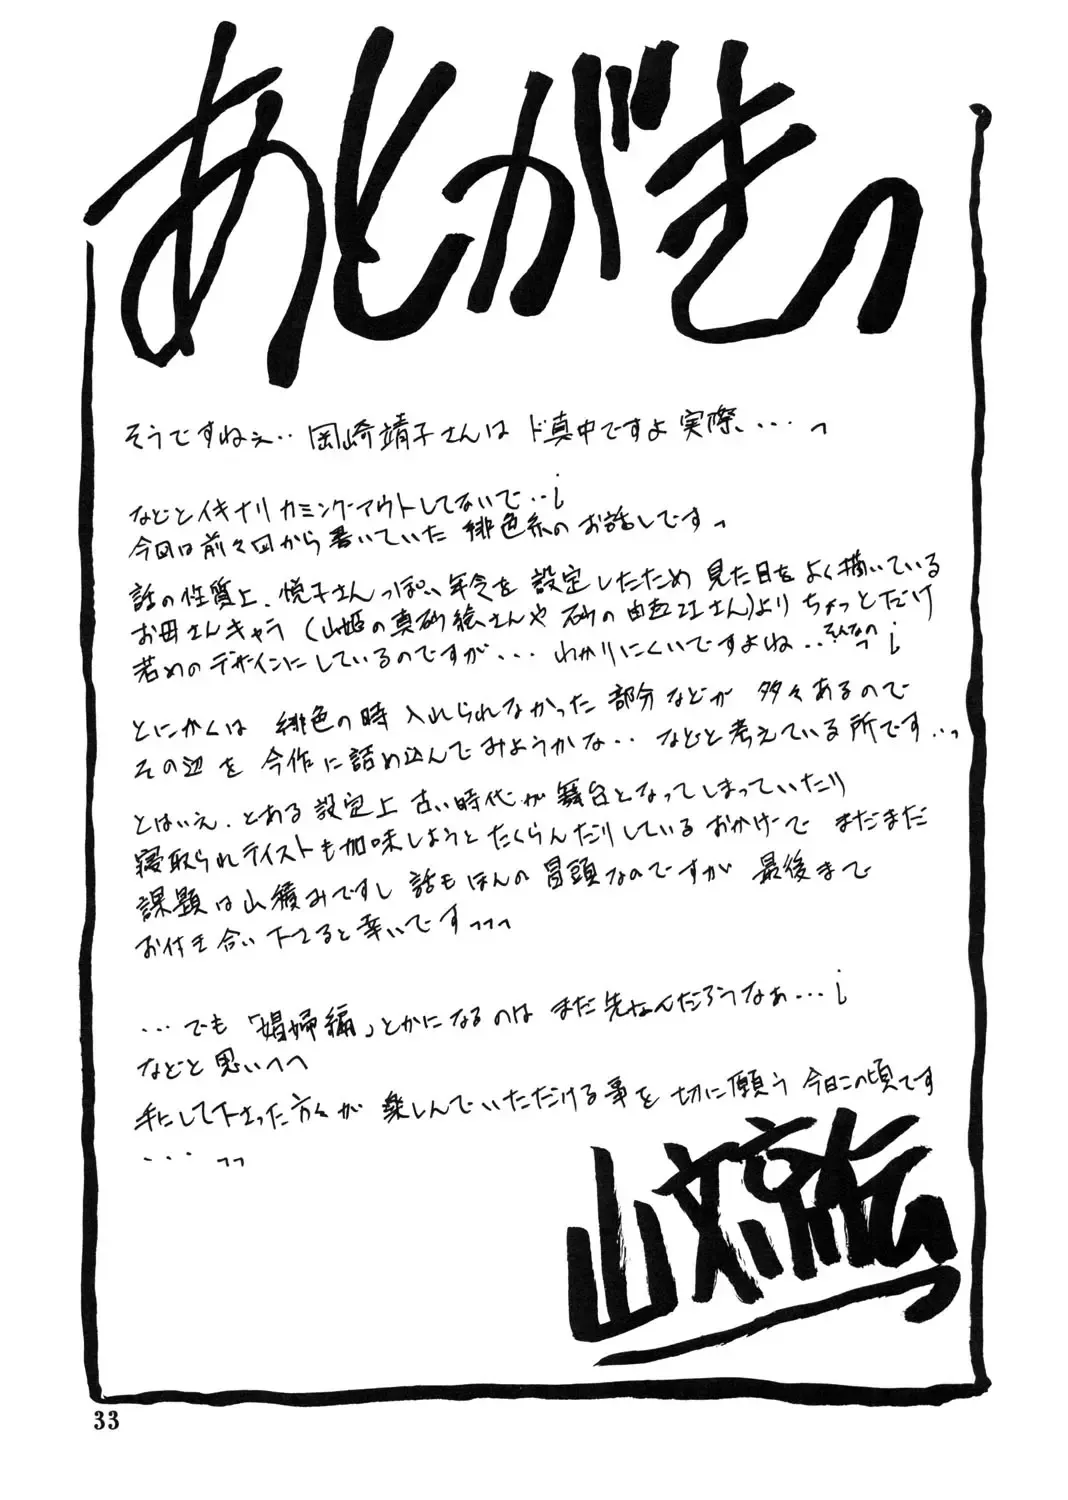 あとがきっ
そうですねぇ‥岡崎靖子さんはド真中ですよ実際、‥‥っ
などとイキナリカミングーアウトしてないで‥¡
今回は前々回から書いていた緋色系のお話しですっ
話の性質上、悦子さんっぽい年令を設定したため見た目をよく描いている
お母さんキャラ(山姫の真砂絵さんや砂の由臣江さん)よりちょっとだけ
若めのデザインにしているのですが‥‥わかりにくいですよね‥そんなのっ¡
とにかくは緋色の時入れられなかった部分などが多々あるので
その辺を今作に詰め込んでみようかな‥などと考えている所です‥っ
とはいえ、とある設定上古い時代が舞台となってしまっていたり
寝取られテイストも加味しようとたくらんだりしているおかげでまだまだ
課題は山積みですし話もほんの冒頭なのですが最後まで
お付き合い下さると幸いですっっっ
‥‥でも「娼婦編」とかになるのはまだ先なんだろうなぁ‥‥¡
などと思いつつ
手にして下さった方々が楽しんでいただける事を切に願う今日この頃です
‥‥っっ
山文京伝
33